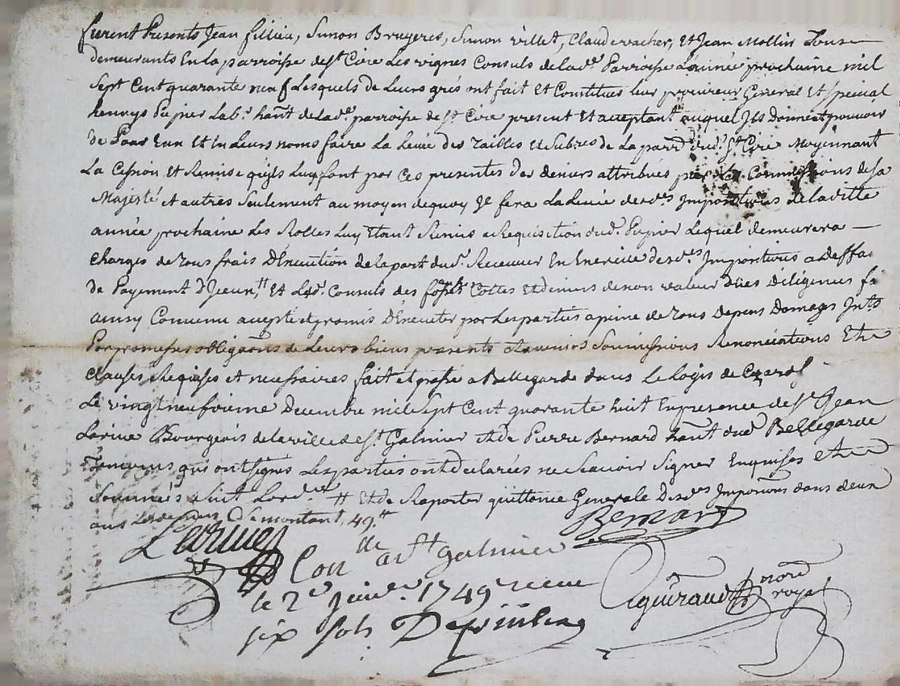 furent Presents Jean fillieu, Simon Bruyeres, Simon villet, Claude vacher, Et Jean Mollin Tous
demeurants En la parroisse de st. Cire Les vignes Consuls de lad. Parroisse L'année prochaine mil
Sept Cent quarante neuf Lesquels de Leurs grés ont fait et Constitués leur procureur General et special
henrys Papier Lab. hant. de lad. parroisse de st. Cire present et acceptant auquel Ils donnent pouvoir
de Pour Eux et en Leurs noms faire La Levée des Tailles et de la par. dud. st. Cire Moyennant
La Cession et Remise qu'ils Luy font par Ces presentes des deniers attribués par Les Commissions de sa
Majesté et autres seulement au moyen de quoy Il fera La Levée desd. Impositions de la ditte
année prochaine Les Rolles Luy Etant Remis a Requisition dud. Papier Lequel demeurera
Chargés de tous frais D'Execution de la part du Receveur En Exercice desd. Impositions a deffa
de Payement d'Iceux, Et Lesd. Consuls des Cottes et deniers de non valeur Diligences
ainsy Convenu accepté promis D'Executer par Les parties a peine de Tous Depens Domages Intts
Par promesses obligaons de Leurs biens presents et avenirs Soumissions Renonciations Et
Clauses Requises et necessaires fait et passé a Bellegarde dans Le Logis de
Le vingt neufvieme Decembre mil sept Cent quarante huit En presence de sr. Jean
Larive Bourgeois de la ville de st. Galmier et de Pierre Bernard hant. dud. Bellegarde
Temoins qui ont signés Les parties ont declarées ne Scavoir Signer Enquises et
Sommées suit Et de Raporter quittance Generale Desd. Impositions dans deux
ans 49
Bernard
Con lle a st galmier
le 2e Janv. 1749 receu
six sols
Cigueraud nore
royal